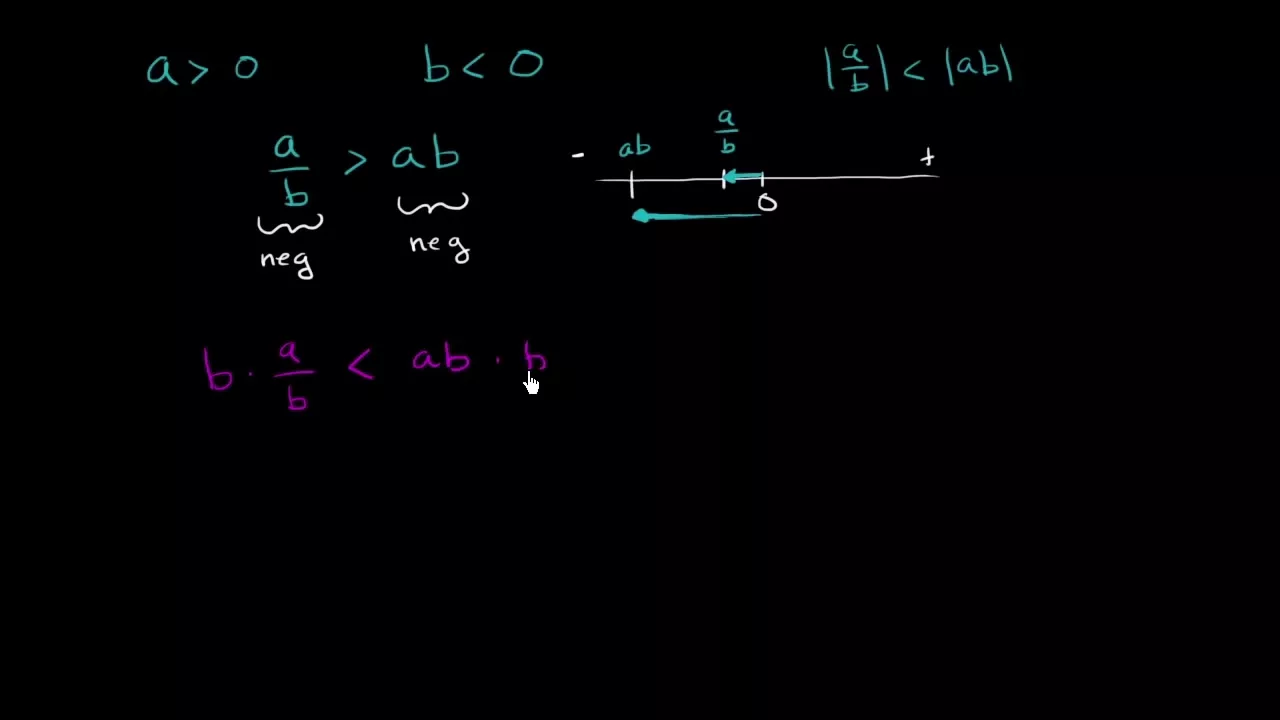 a > 0 b < 0 |a/b| < |ab|
a/b > ab
neg neg
- ab a/b +
0
b · a/b < ab · b